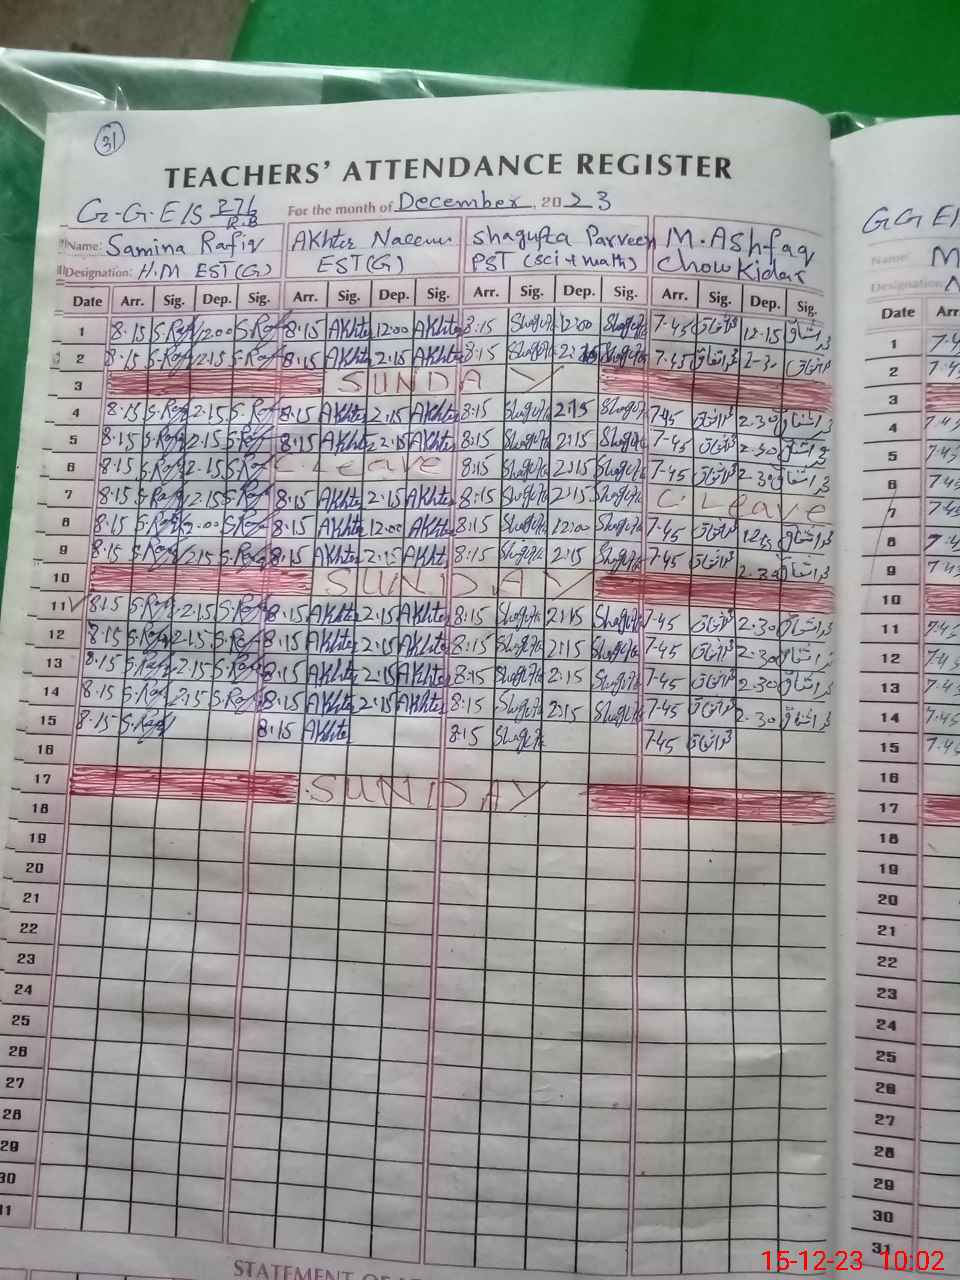 31
TEACHERS' ATTENDANCE REGISTER
G.G.E/S 276 R.B For the month of December, 2023
Name: Samina Rafiq Akhter Naeem Shagufta Parveen M. Ashfaq
Designation: H.M EST(G) EST(G) PST (sci + math) Chowkidar
Date Arr. Sig. Dep. Sig. Arr. Sig. Dep. Sig. Arr. Sig. Dep. Sig. Arr. Sig. Dep. Sig.
1 8.15 S.Raf 12.00 S.Raf 8.15 Akhter 12:00 Akhter 8:15 Shagufta 12:00 Shagufta 7.45 12.15
2 8.15 S.Raf 2.15 S.Raf 8.15 Akhter 2.15 Akhter 8:15 Shagufta 2:15 Shagufta 7.45 2.30
3 SUNDAY
4 8.15 S.Raf 2.15 S.Raf 8.15 Akhter 2.15 Akhter 8:15 Shagufta 2:15 Shagufta 7.45 2.30
5 8.15 S.Raf 2.15 S.Raf 8.15 Akhter 2.15 Akhter 8:15 Shagufta 2:15 Shagufta 7.45 2.30
6 8.15 S.Raf 2.15 S.Raf C. Leave 8:15 Shagufta 2:15 Shagufta 7.45 2.30
7 8.15 S.Raf 2.15 S.Raf 8.15 Akhter 2.15 Akhter 8:15 Shagufta 2:15 Shagufta C. Leave
8 8.15 S.Raf 12.00 S.Raf 8.15 Akhter 12:00 Akhter 8:15 Shagufta 12:00 Shagufta 7.45 12.15
9 8.15 S.Raf 2.15 S.Raf 8.15 Akhter 2.15 Akhter 8:15 Shagufta 2:15 Shagufta 7.45 2.30
10 SUNDAY
11 8.15 S.Raf 2.15 S.Raf 8.15 Akhter 2.15 Akhter 8:15 Shagufta 2:15 Shagufta 7.45 2.30
12 8.15 S.Raf 2.15 S.Raf 8.15 Akhter 2.15 Akhter 8:15 Shagufta 2:15 Shagufta 7.45 2.30
13 8.15 S.Raf 2.15 S.Raf 8.15 Akhter 2.15 Akhter 8:15 Shagufta 2:15 Shagufta 7.45 2.30
14 8.15 S.Raf 2.15 S.Raf 8.15 Akhter 2.15 Akhter 8:15 Shagufta 2:15 Shagufta 7.45 2.30
15 8.15 S.Raf 8.15 Akhter 8:15 Shagufta 7.45
16
17 SUNDAY
18
19
20
21
22
23
24
25
26
27
28
29
30
31
STATEMENT OF
GG E/
Name: M
Designation:
Date Arr
1 7.4
2 7.4
3
4 7.45
5 7.45
6 7.45
7 7.45
8 7.4
9 7.45
10
11 7.45
12 7.45
13 7.45
14 7.45
15 7.45
16
17
18
19
20
21
22
23
24
25
26
27
28
29
30
31
15-12-23 10:02